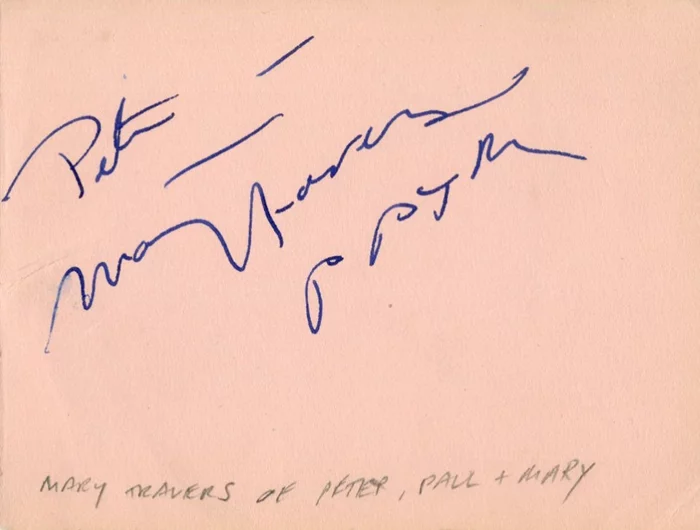 Peter
Mary Travers
P P & M
MARY TRAVERS OF PETER, PAUL + MARY